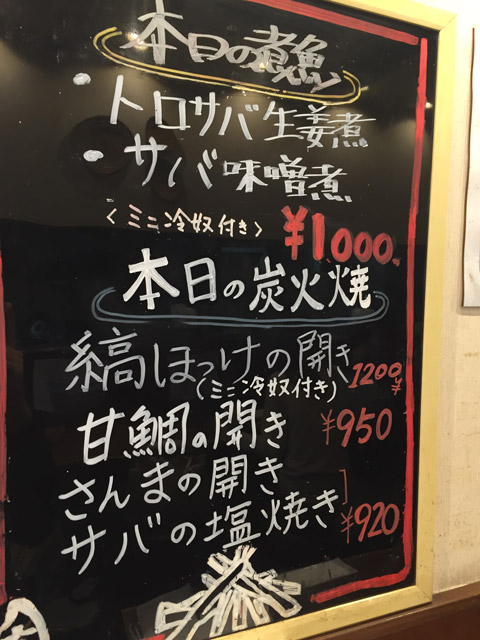 本日の煮魚
・トロサバ生姜煮
・サバ味噌煮
<ミニ冷奴付き> ¥1,000.
本日の炭火焼
縞ほっけの開き 1200¥
(ミニ冷奴付き)
甘鯛の開き ¥950
さんまの開き
サバの塩焼き ¥920